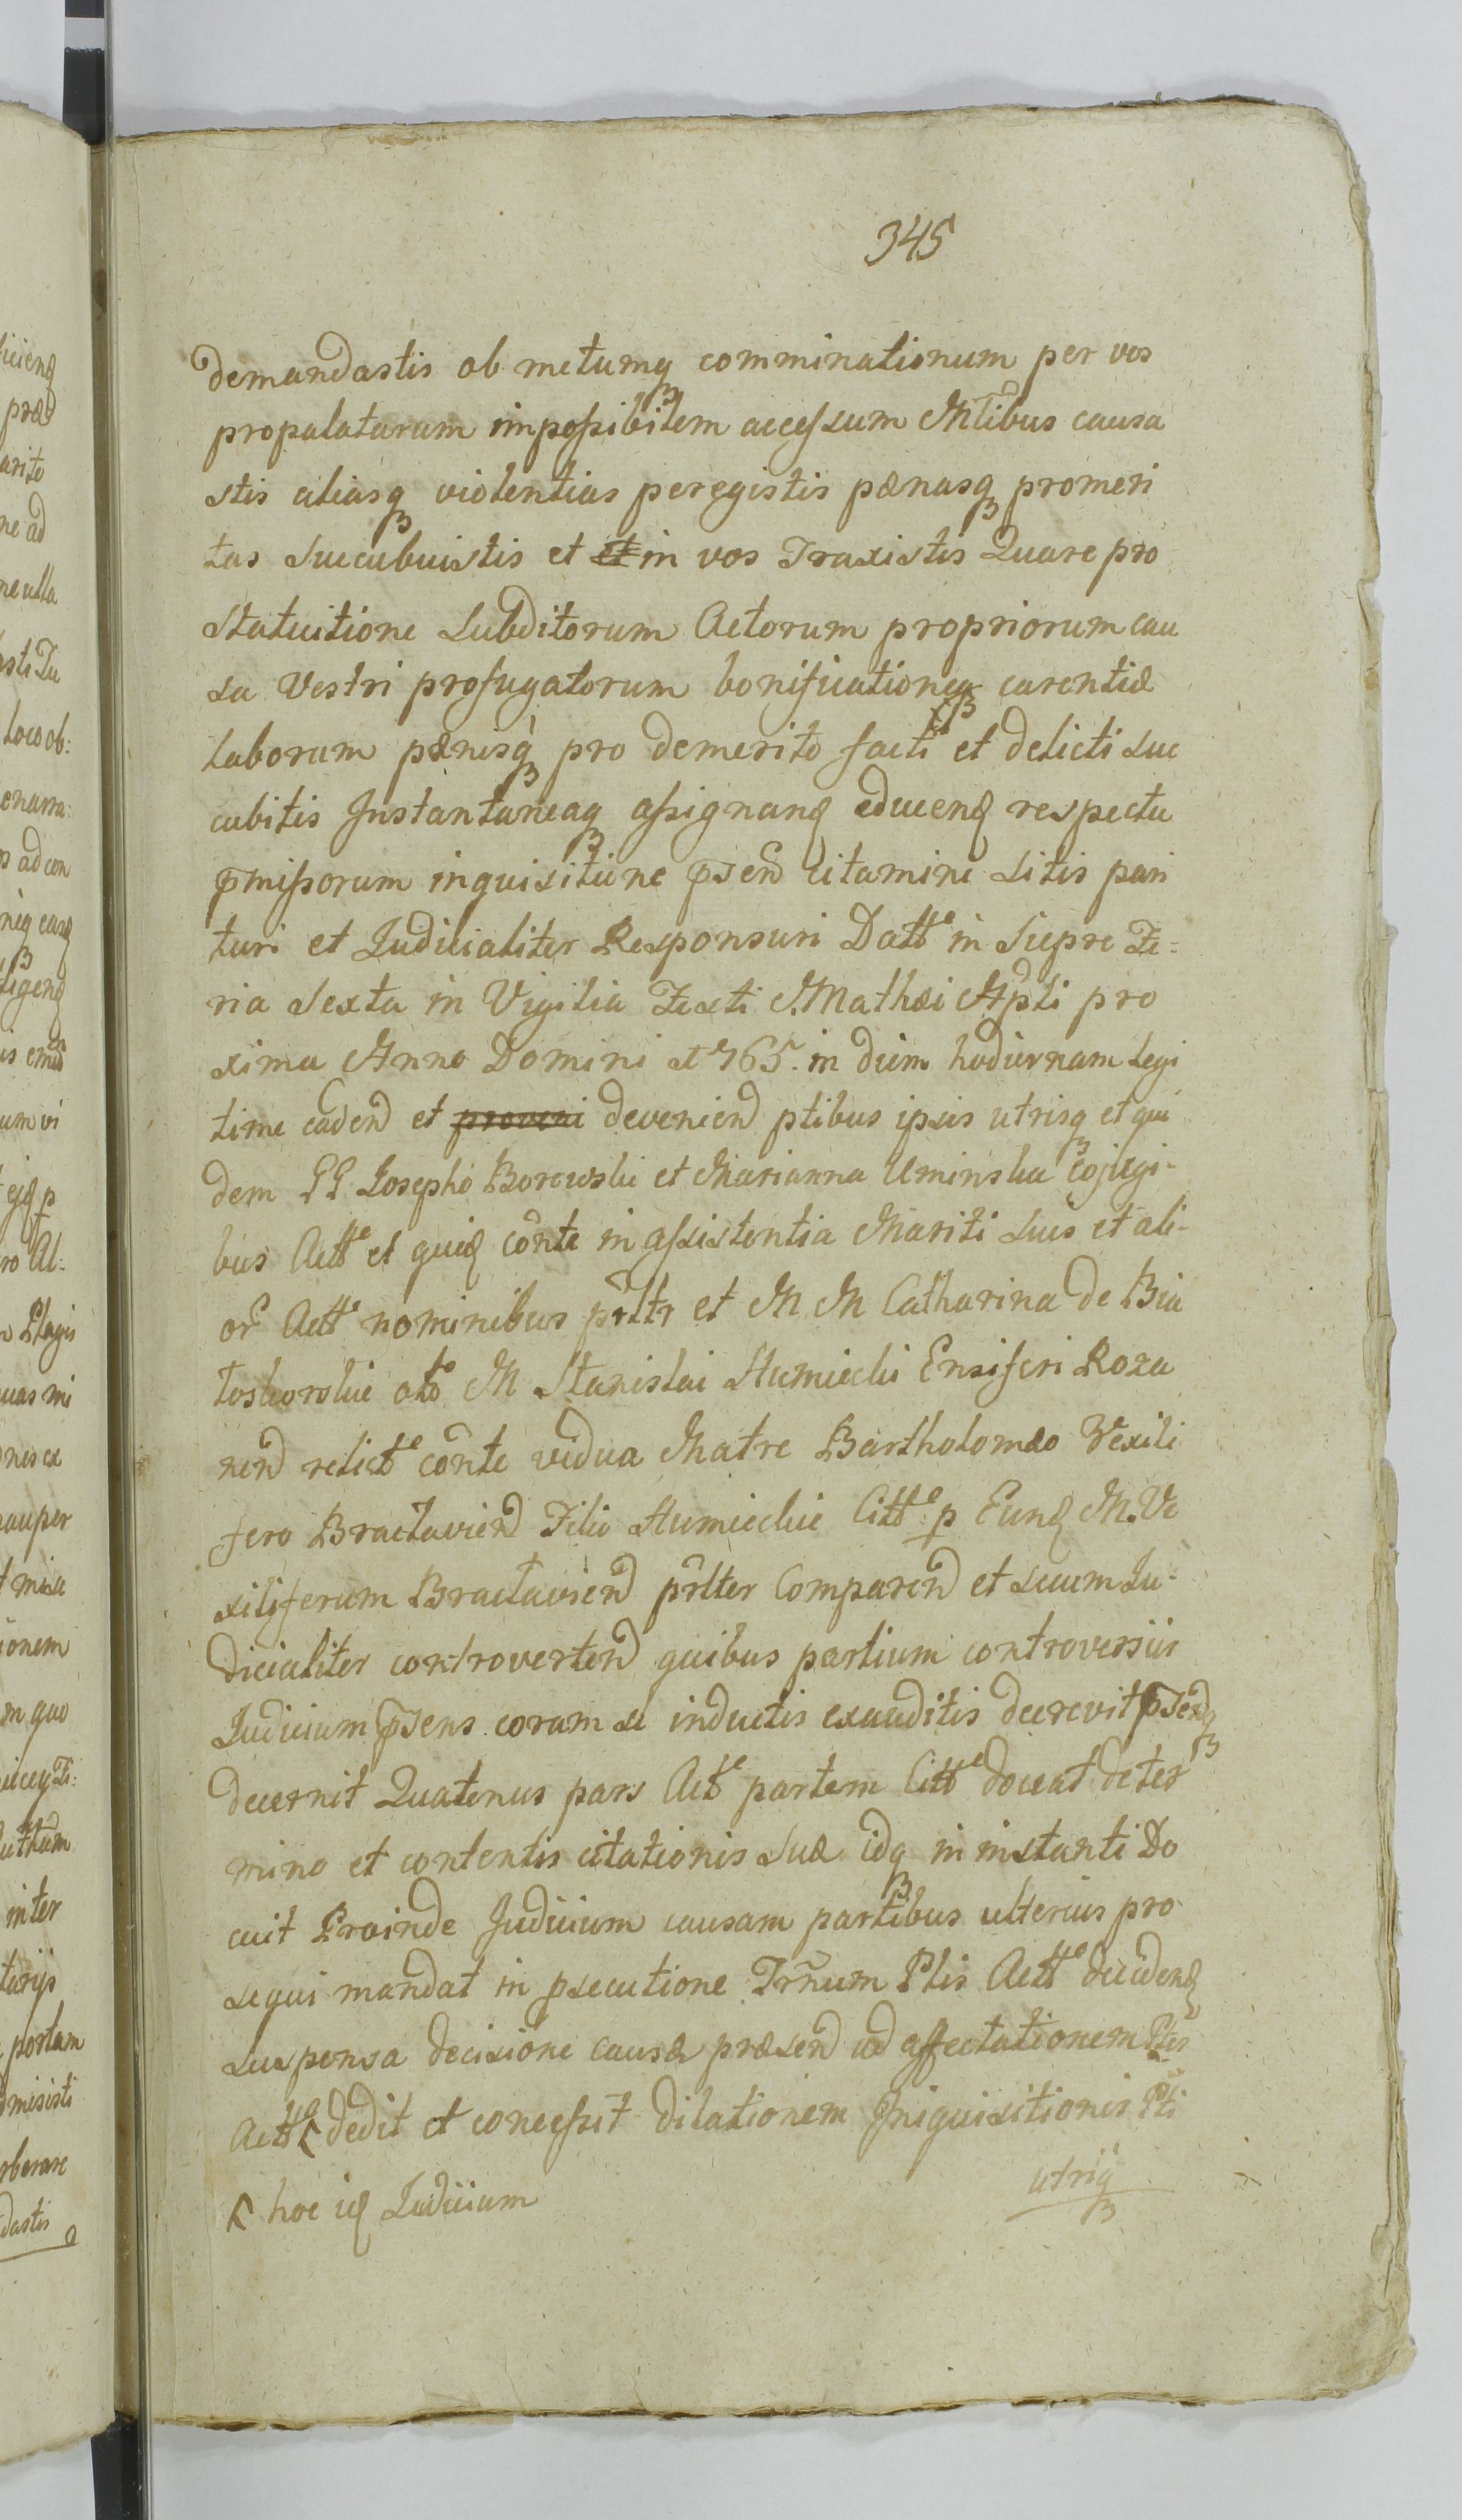 345
demandastis ob metumq3 comminationum per vos
propalatarum impossibilem accessum Mtibus causa
stis aliasq3 violentias peregistis pænasq3 promeri
tas succubuistis et et in vos Traxistis Quare pro
statuitione subditorum Actorum propriorum cau
sa Vestri profugatorum bonificationeq3 carentiæ
laborum pænisq3 pro demerito facti et delicti suc
cubitis Instantaneaq3 assignanđ educenđ respectu
pmissorum inquisitiine psenđ citamini sitis pari
turi et Iudicialiter Responsuri Datte in Siepre Fe=
ria sexta in Vigilia Festi S. Mathæi Apli pro
xima Anno Domini 1765. in diem hodiernam legi
time cadenđ et proveni devenienđ ptibus ipsis utrisq3 et qui
dem GG Iosepho Borewski et Marianna Uminska cojugi-
bus Actte et quiđ conte in assistentia Mariti sui et ali-
or Actte nominibus prltr et M M Catharina de Bia
toskorskie oto M Stanislai Humiecki Ensiferi Roza
nenđ relicte conte vidua Matre Bartholomæo Vexili
fero Braclavienđ Filio Humieckie Citte p Eunđ M. Ve
xiliferum Braclavienđ prlter Comparenđ et secum Iu-
dicialiter controvertenđ quibus partium controversiis
Iudicium psens coram se inductis exauditis decrevit psenđq3
decernit Quatenus pars Acte partem Citte doceat de ter
mino et contentis citationis suæ idq3 in instanti Do
cuit Proinde Iudicium causam partibus ulterius pro
sequi mandat in psecutione Trnum Ptis Actte decidenđ
suspensa decisione causæ præsenđ ad affectationem Ptis
Actte dedit et concessit dilationem Inquisitionis Pti
utriq3
hoc iđ Iudicium